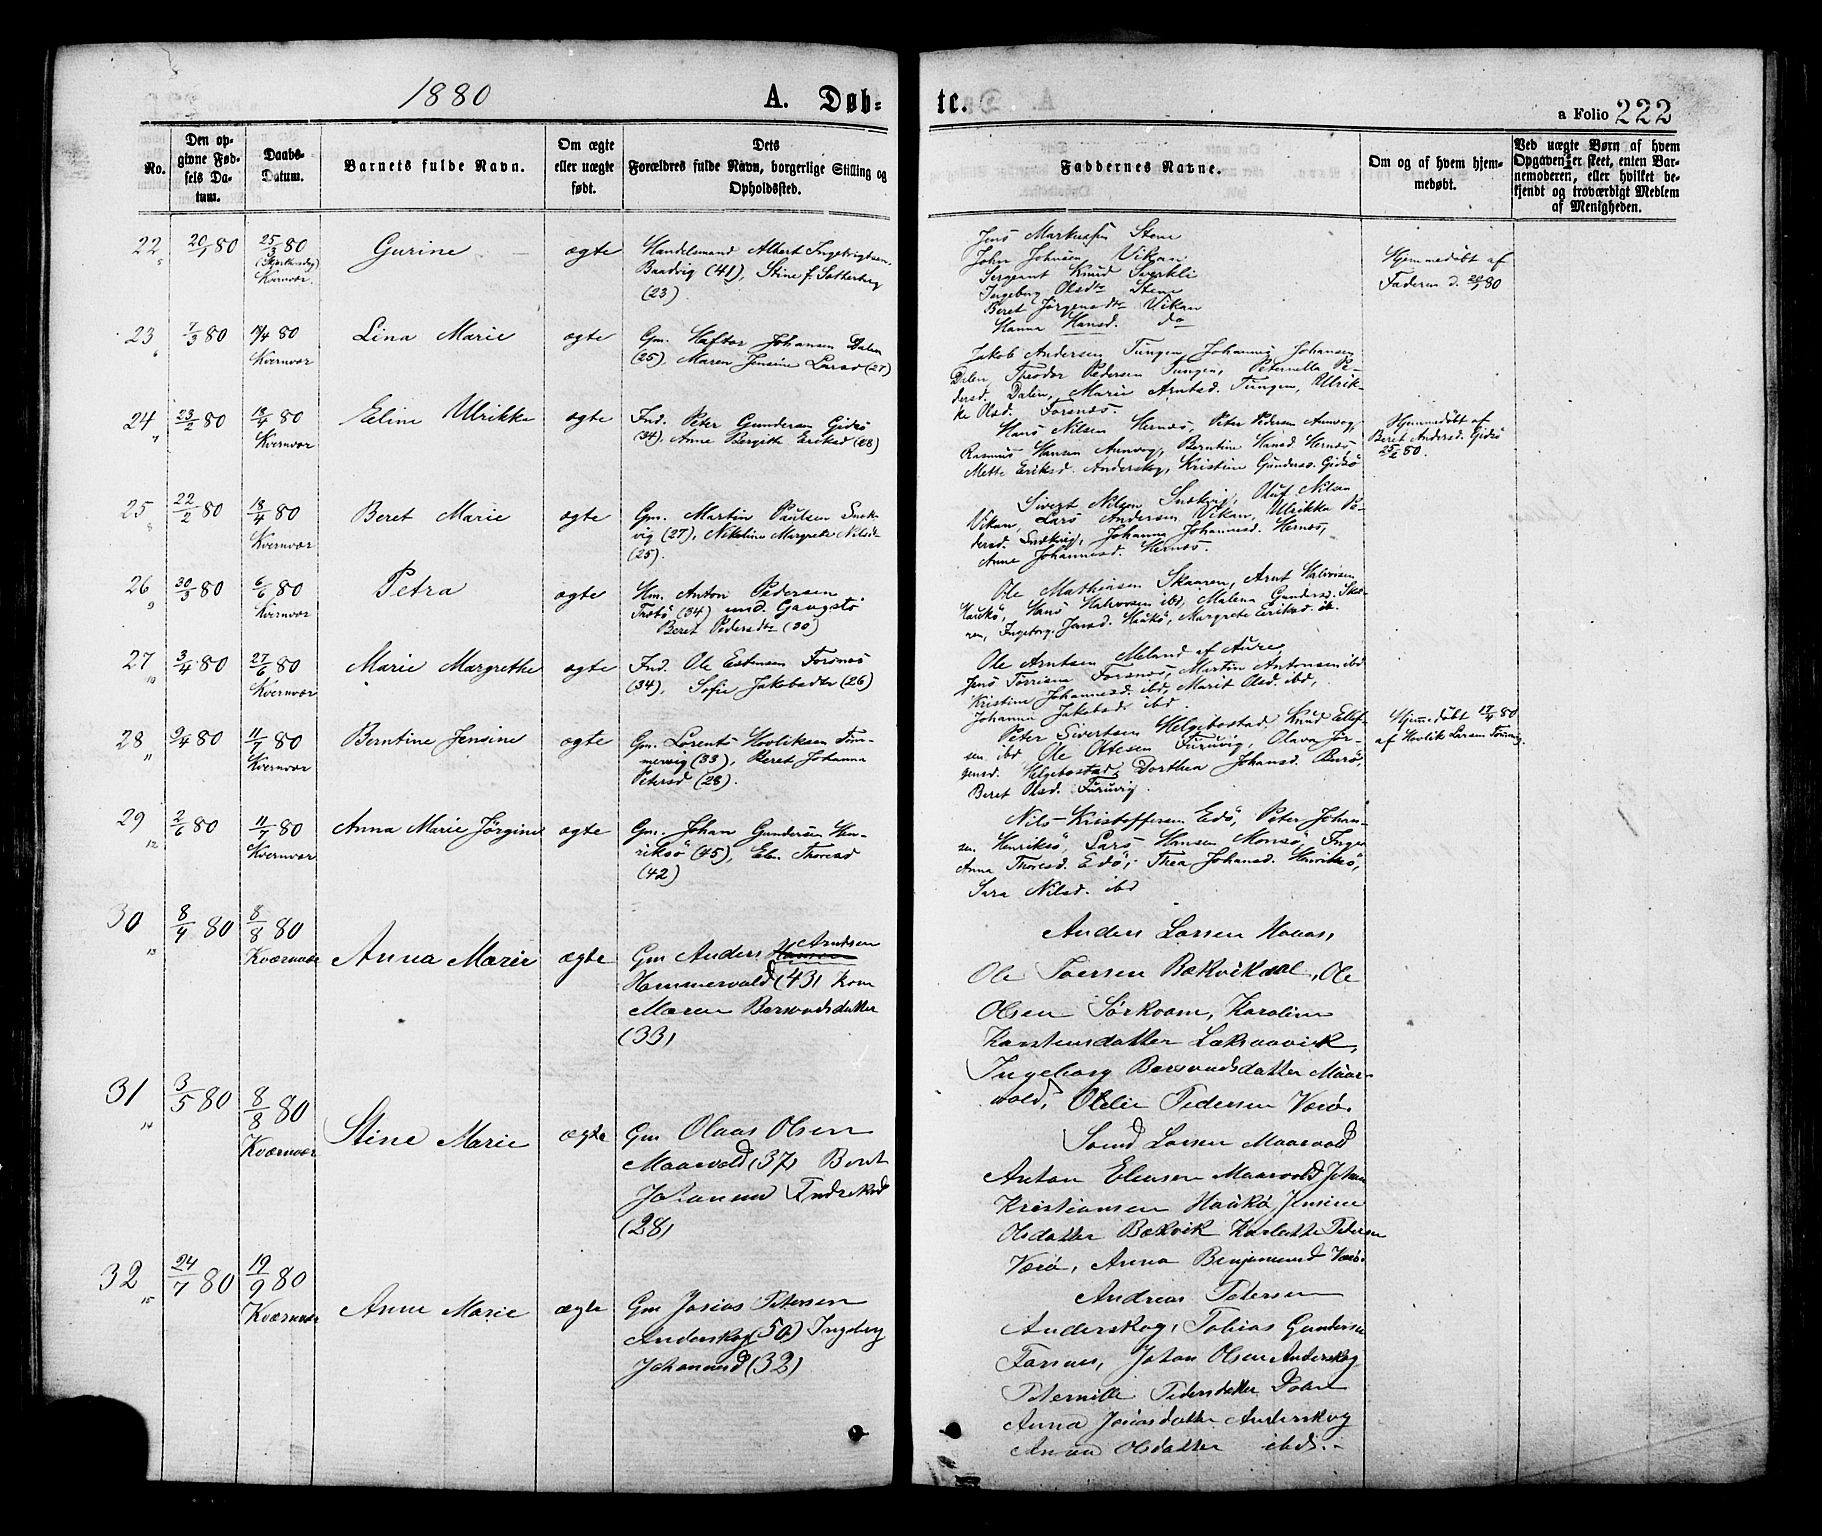 1880
A. Døb-
te.
a Folio 222
No.
Den op-
givne Fød-
sels Da-
tum.
Daabs-
Datum.
Barnets fulde Navn.
Om ægte
eller uægte
født.
Dets
Forældres fulde Navn, borgerlige Stilling og
Opholdssted.
Faddernes Navne.
Om og af hvem hjem-
medøbt.
Ved uægte Børn af hvem
Opgaven er skeet, enten Bar-
nemoderen, eller hvilket be-
kjendt og troværdigt Medlem
af Menigheden.
22
20/1 80
25/3 80
(Skjærthorsdag)
Kvernvær
Gurine
ægte
Handelsmand Albert Ingebrigtsen
Baadvig (41), Stine f. Sotherberg
(23)
Jens Markussen Stene
John Johnsen Vikan
Sergeant Knud Sverkli
Ingeborg Olsdtr Stene
Beret Jørgensdtr Vikan
Hanna Hansd. do
Hjemmedøbt af
Faderen d. 20/1 80
23
7/3 80
18/4 80
Kvernvær
Lina Marie
ægte
Gm. Haftor Johansen Dalen
(25), Maren Jensine Larsd (27)
Jakob Andersen Tungen, Johannes Johansen
Dalen, Theodor Pedersen Tungen, Peternella Pe-
dersd. Dalen, Marie Arntsd. Tungen, Ulrik-
ke Olsd. Forsnes.
24
23/2 80
18/4 80
Kvernvær
Eline Ulrikke
ægte
Ind. Peter Gundersen Gidsø
(34), Anne Bergith Eriksd (28)
Hans Nilsen Hernes, Peter Pedersen Aunvog,
Rasmus Hansen Aunvog, Berntine Hansd. Hernes,
Mette Eriksd. Anderskog, Kristine Gunders. Gidsø
Hjemmedøbt af
Beret Andersd. Gidsø
25/2 80.
25
22/2 80
18/4 80
Kvernvær
Beret Marie
ægte
Gm. Martin Paulsen Snek-
vig (27), Nikoline Margrete Nilsdr
(25).
Sivert Nilsen Snekvig, Oluf Nilsen
Vikan, Lars Andersen Vikan, Ulrikka Pe-
dersd. Snekvig, Johanna Johannesd. Hernes,
Anne Johannesd. Hernes.
26
30/3 80
6/6 80
Kvernvær
Petra
ægte
Hm. Anton Pedersen
(34) und. Gangstø
Beret Pedersdtr (30)
Ole Mathiasen Skaaren, Arnt Halvorsen
Haakø, Hans Halvorsen ibd, Malena Gundersd. Skaa-
ren, Ingeborg Jensd. Haakø, Margrete Eriksd. ib.
27
3/4 80
27/6 80
Kvernvær
Marie Margrethe
ægte
Ind. Ole Estensen Forsnes
(34), Sofie Jakobsdtr (26)
Ole Arntsen Meland af Aure,
Jens Forsnes, Martin Antonsen ibd
Kristine Johannesd. ibd, Marit Olsd. ibd,
Johanna Jakobsd. ibd.
28
9/4 80
11/7 80
Kvernvær
Berntine Jensine
ægte
Gm. Lorents Hovliksen Tøm-
mervig (33), Beret Johanna
Petersd (28).
Peter Sivertsen Helgebostad, Knud Ellef-
sen ibd Ole Ottesen Furuvig, Olava Jør-
gensd. Helgebostad, Dorthea Johansd. Burø,
Beret Olsd. Furuvig.
Hjemmedøbt 17/4 80
af Hovlik Larsen Tømvig.
29
2/6 80
11/7 80
Kvernvær
Anna Marie Jørgine
ægte
Gm. Johan Gundersen Hen-
riksø (45), Elen Thoresd
(42)
Nils Kristoffersen Edø, Peter Johan-
sen Henriksø, Lars Hansen Monsø, Inger
Anna Thoresd. Edø, Thea Johansd. Henriksø,
Sara Nilsd. ibd
30
8/4 80
8/8 80
Kværnvær
Anna Marie
ægte
Gm Anders Arntsen
Hammervold (43) kone
Maren Borsvensdatter
(33)
Anders Larsen Hanas,
Ole Toersen Bækvikdal, Ole
Olsen Sørkvam, Karoline
Karstensdatter Laksaavik,
Ingeborg Borsvendsdatter Maar-
vold, Oldie Pedersen Værø.
31
3/5 80
8/8 80
Kværnvær
Stine Marie
ægte
Gm Olaus Olsen
Maarvold (37) Beret
Johanna Endreksd
(28)
Svend Larsen Maarvold
Anton Eliasen Maarvold Johan
Kristiansen Haakø Jensine
Olsdatter Bækvik Karlotte Petersen
Værø, Anna Benjaminsd Værø.
32
24/7 80
19/9 80
Kværnvær
Anne Marie
ægte
Gm Josias Petersen
Anderskog (50) Ingebrg
Johannesd (32)
Andreas Petersen
Anderskog, Tobias Gundersen
Forsnes, Johan Olsen Anderskog
Peternille Pedersdatter Dolm
Anna Josiasdatter Anderskog
Anna Olsdatter ibd.